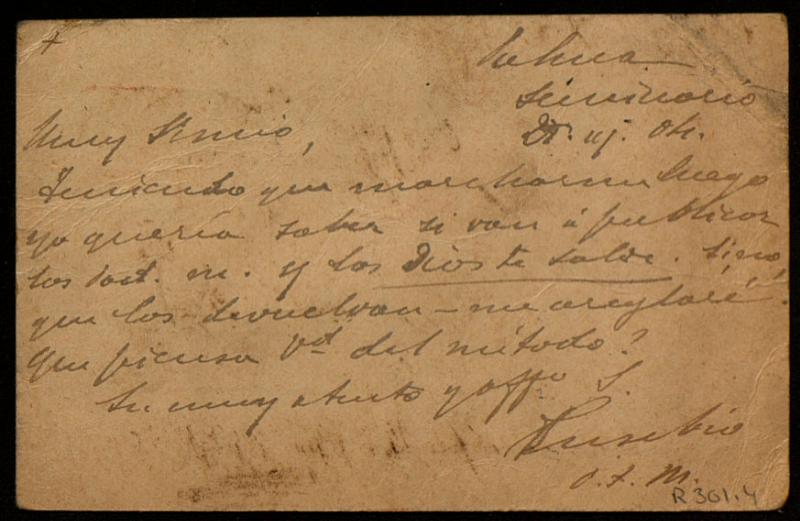 +
Seminario
Muy Sr mio,
Teniendo que marcharme luego
yo quería saber si van á publicar
los m. y los Dios te salve. Si no
que los devuelvan - me arreglaré.
Que piensa Vd del método?
Su muy atento y affo S.
Eusebio
O. F. M.
R 361.4